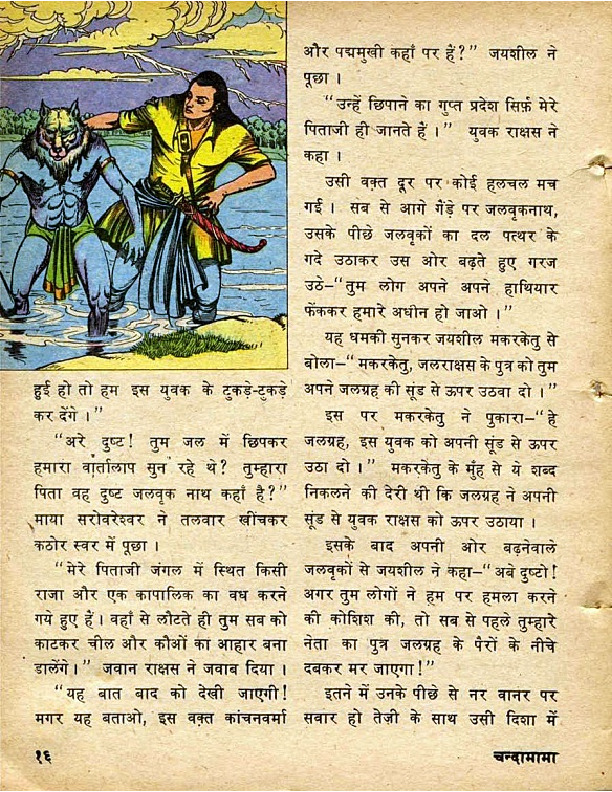 हुई हो तो हम इस युवक के टुकड़े-टुकड़े
कर देंगे ।"
"अरे दुष्ट! तुम जल में छिपकर
हमारा वार्तालाप सुन रहे थे? तुम्हारा
पिता वह दुष्ट जलवृक नाथ कहाँ है?"
माया सरोवरेश्वर ने तलवार खींचकर
कठोर स्वर में पूछा ।
"मेरे पिताजी जंगल में स्थित किसी
राजा और एक कापालिक का वध करने
गये हुए हैं । वहाँ से लौटते ही तुम सब को
काटकर चील और कौओं का आहार बना
डालेंगे ।" जवान राक्षस ने जवाब दिया ।
"यह बात बाद को देखी जाएगी!
मगर यह बताओ, इस वक़्त कांचनवर्मा
और पद्ममुखी कहाँ पर हैं?" जयशील ने
पूछा ।
"उन्हें छिपाने का गुप्त प्रदेश सिर्फ़ मेरे
पिताजी ही जानते हैं ।" युवक राक्षस ने
कहा ।
उसी वक़्त दूर पर कोई हलचल मच
गई । सब से आगे गैंड़े पर जलवृकनाथ,
उसके पीछे जलवृकों का दल पत्थर के
गदे उठाकर उस ओर बढ़ते हुए गरज
उठे-"तुम लोग अपने अपने हाथियार
फेंककर हमारे अधीन हो जाओ ।"
यह धमकी सुनकर जयशील मकरकेतु से
बोला-"मकरकेतु, जलराक्षस के पुत्र को तुम
अपने जलग्रह की सूंड से ऊपर उठवा दो ।"
इस पर मकरकेतु ने पुकारा-"हे
जलग्रह, इस युवक को अपनी सूंड से ऊपर
उठा दो ।" मकरकेतु के मुँह से ये शब्द
निकलने की देरी थी कि जलग्रह ने अपनी
सूंड से युवक राक्षस को ऊपर उठाया ।
इसके बाद अपनी ओर बढ़नेवाले
जलवृकों से जयशील ने कहा-"अबे दुष्टो!
अगर तुम लोगों ने हम पर हमला करने
की कोशिश की, तो सब से पहले तुम्हारे
नेता का पुत्र जलग्रह के पैरों के नीचे
दबकर मर जाएगा!"
इतने में उनके पीछे से नर वानर पर
सवार हो तेज़ी के साथ उसी दिशा में
१६
चन्दामामा